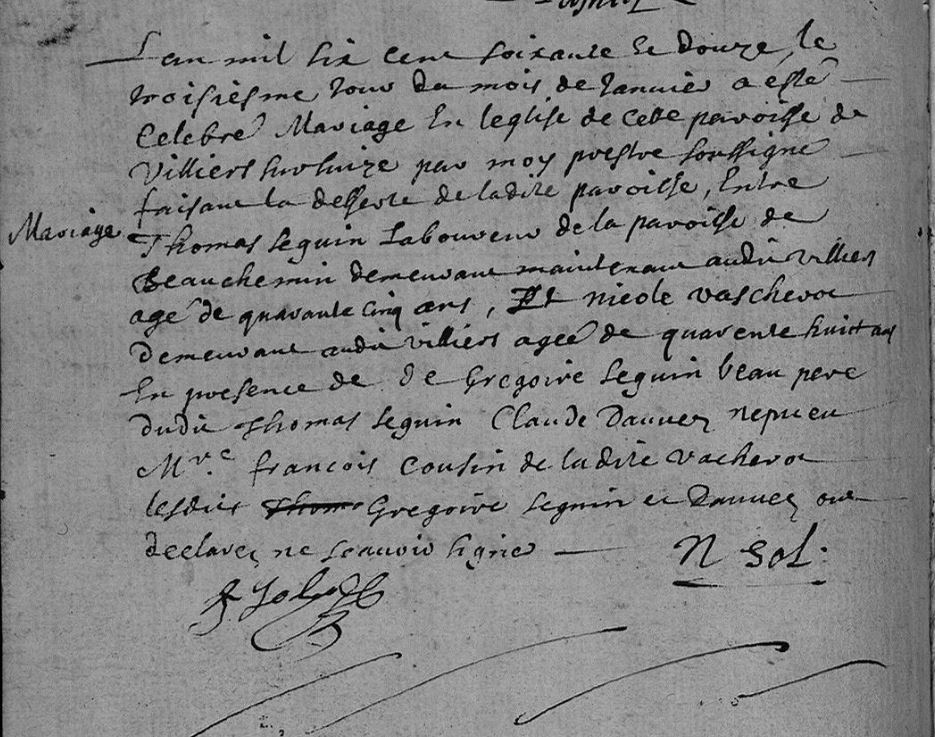 L'an mil six cent soixante et douze, le
troisiesme Jour du mois de Janvier a esté
Celebré Mariage En leglise de cette paroisse de
Villiers sur suize par moy prestre soussigne
faisant la desserte de ladite paroisse, Entre
Mariage Thomas Seguin Laboureur de la paroisse de
Beauchemin demeurant maintenant audit villiers
agé de quarante cinq ans, Et nicole vascherot
Demeurant audit villiers agée de quarente huict ans
En presence de de Gregoire Seguin beau pere
dudit Thomas Seguin Claude nepveu
Mre francois cousin de ladite vacherot
lesdits Gregoire Seguin et ont
declarez ne scavoir signer
N Sol.